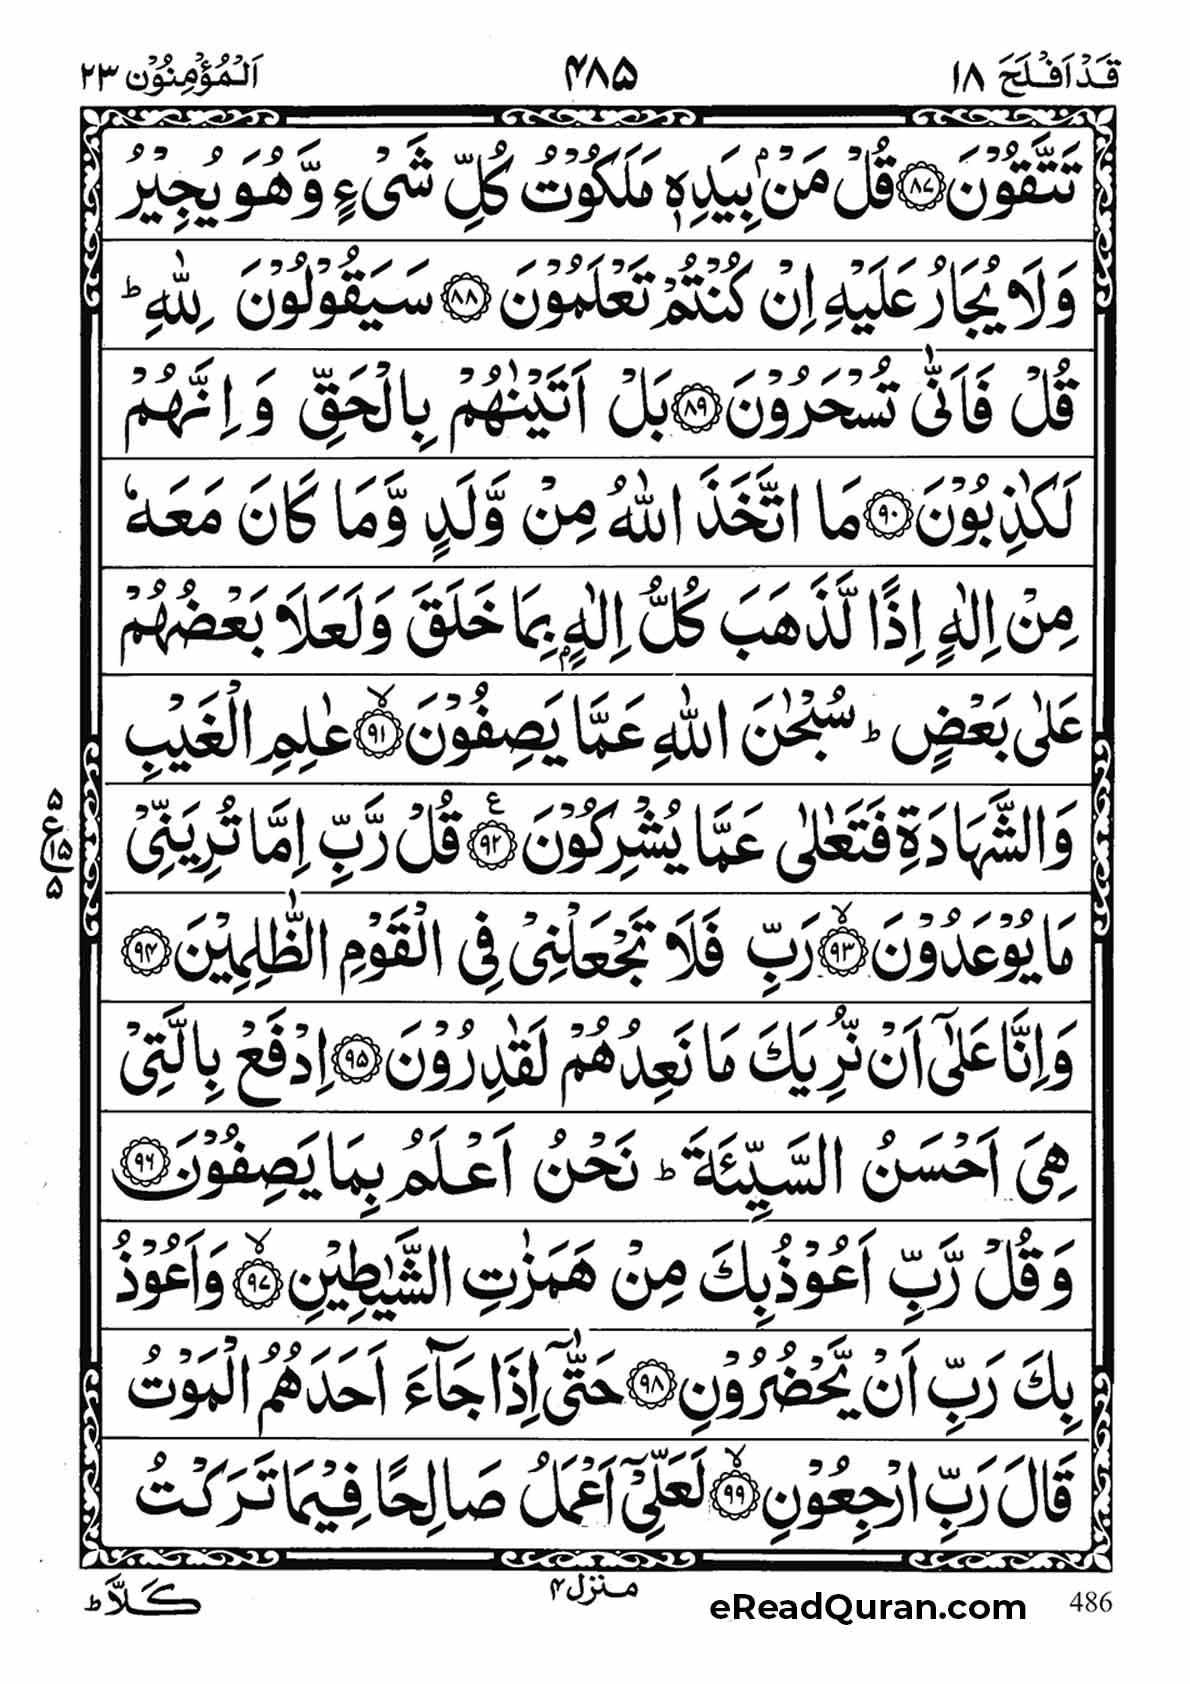 قَدْ اَفْلَحَ ۱۸ ۴۸۵ اَلْمُؤْمِنُوْن ۲۳
تَتَّقُوْنَ ﴿۸۷﴾ قُلْ مَنْۢ بِيَدِهٖ مَلَكُوْتُ كُلِّ شَیْءٍ وَّهُوَ يُجِيْرُ
وَلَا يُجَارُ عَلَيْهِ اِنْ كُنْتُمْ تَعْلَمُوْنَ ﴿۸۸﴾ سَيَقُوْلُوْنَ لِلّٰهِ ؕ
قُلْ فَاَنّٰی تُسْحَرُوْنَ ﴿۸۹﴾ بَلْ اَتَيْنٰهُمْ بِالْحَقِّ وَ اِنَّهُمْ
لَكٰذِبُوْنَ ﴿۹۰﴾ مَا اتَّخَذَ اللّٰهُ مِنْ وَّلَدٍ وَّمَا كَانَ مَعَهٗ
مِنْ اِلٰهٍ اِذًا لَّذَهَبَ كُلُّ اِلٰهٍۭ بِمَا خَلَقَ وَلَعَلَا بَعْضُهُمْ
عَلٰی بَعْضٍ ؕ سُبْحٰنَ اللّٰهِ عَمَّا يَصِفُوْنَ ﴿۹۱﴾ۙ عٰلِمِ الْغَيْبِ
وَالشَّهَادَةِ فَتَعٰلٰی عَمَّا يُشْرِكُوْنَ ﴿۹۲﴾ع قُلْ رَّبِّ اِمَّا تُرِيَنِّیْ
۵ ع ۱۵ ۵
مَا يُوْعَدُوْنَ ﴿۹۳﴾ۙ رَبِّ فَلَا تَجْعَلْنِیْ فِی الْقَوْمِ الظّٰلِمِيْنَ ﴿۹۴﴾
وَاِنَّا عَلٰٓی اَنْ نُّرِيَكَ مَا نَعِدُهُمْ لَقٰدِرُوْنَ ﴿۹۵﴾ اِدْفَعْ بِالَّتِیْ
هِیَ اَحْسَنُ السَّيِّئَةَ ؕ نَحْنُ اَعْلَمُ بِمَا يَصِفُوْنَ ﴿۹۶﴾
وَقُلْ رَّبِّ اَعُوْذُ بِكَ مِنْ هَمَزٰتِ الشَّيٰطِيْنِ ﴿۹۷﴾ۙ وَاَعُوْذُ
بِكَ رَبِّ اَنْ يَّحْضُرُوْنِ ﴿۹۸﴾ حَتّٰٓی اِذَا جَآءَ اَحَدَهُمُ الْمَوْتُ
قَالَ رَبِّ ارْجِعُوْنِ ﴿۹۹﴾ۙ لَعَلِّیْۤ اَعْمَلُ صَالِحًا فِيْمَا تَرَكْتُ
منزل ۴
كَلَّا ؕ
eReadQuran.com 486